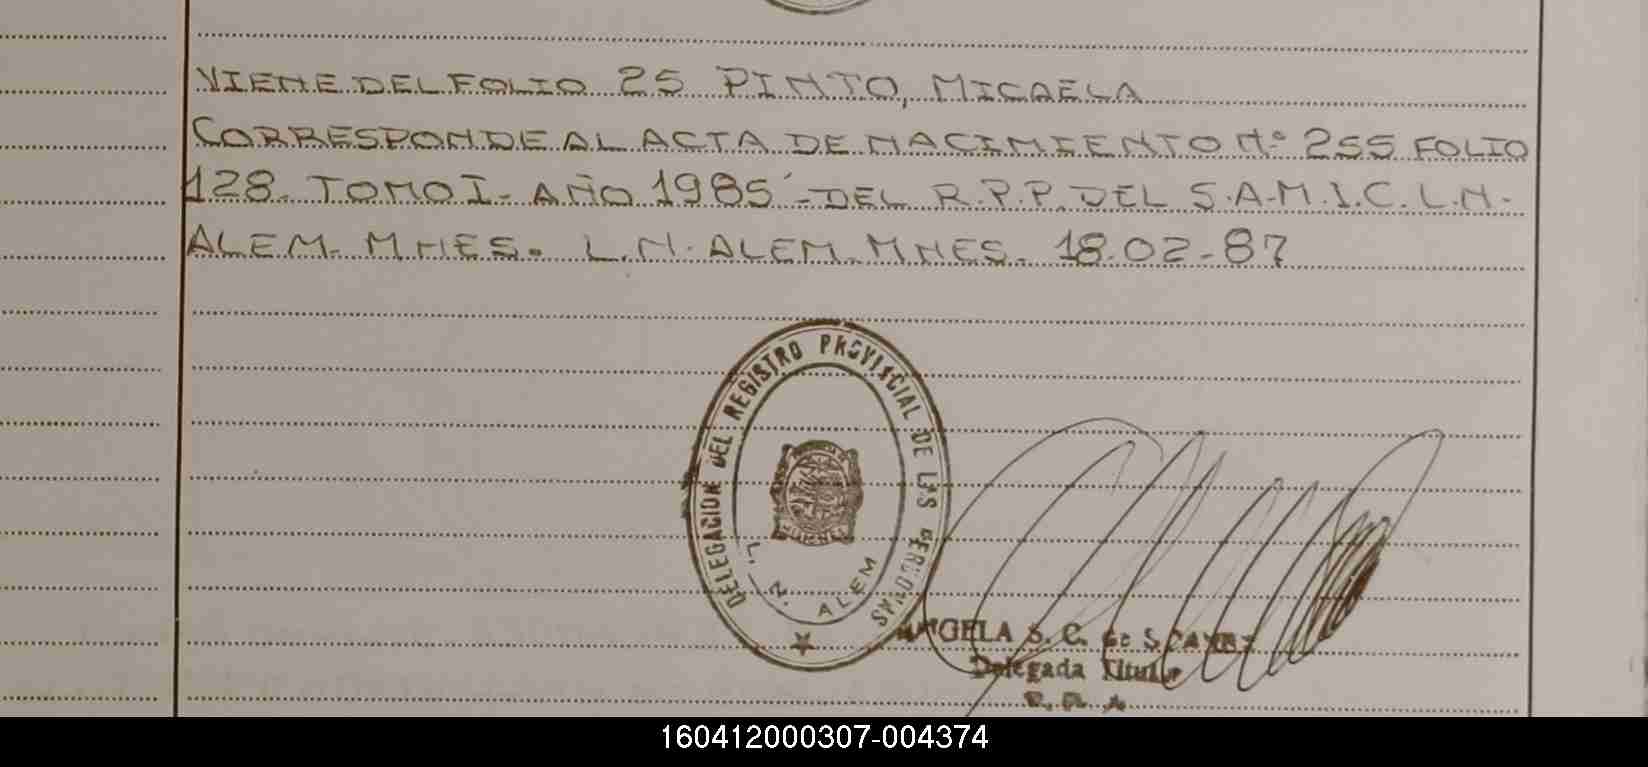 VIENE DEL FOLIO 25 PINTO, MICAELA
CORRESPONDE AL ACTA DE NACIMIENTO Nº 255 FOLIO
128. TOMO I- AÑO 1985 - DEL R.P.P. DEL S.A.M.I.C. L.N.
ALEM- MNES. L.N. ALEM. MNES. 18-02-87
DELEGACION DEL REGISTRO PROVINCIAL DE LAS PERSONAS
L. N. ALEM
ANGELA S. C. de
Delegada Titular
160412000307-004374